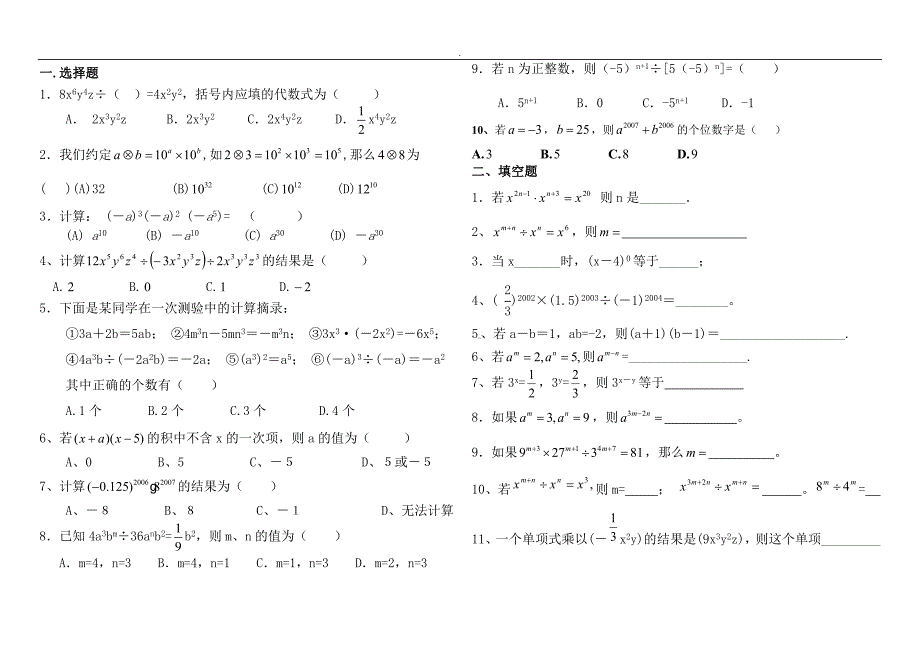 一.选择题
1．8x⁶y⁴z÷（　）=4x²y²，括号内应填的代数式为（　　）
A． 2x³y²z　　B．2x³y²　　C．2x⁴y²z　　D．1/2 x⁴y²z
2．我们约定a⊗b=10ᵃ×10ᵇ,如2⊗3=10²×10³=10⁵,那么4⊗8为
(　　)(A)32　　(B)10³²　　(C)10¹²　　(D)12¹⁰
3．计算： (－a)³(－a)² (－a⁵)=　（　　）
(A) a¹⁰　　(B) －a¹⁰　　(C) a³⁰　　(D) －a³⁰
4、计算12x⁵y⁶z⁴÷(−3x²y³z)÷2x³y³z³的结果是（　　）
A. 2　　B. 0　　C. 1　　D. −2
5．下面是某同学在一次测验中的计算摘录：
①3a＋2b＝5ab； ②4m³n－5mn³=－m³n； ③3x³·(－2x²)=－6x⁵；
④4a³b÷(－2a²b)=－2a； ⑤(a³)²＝a⁵； ⑥(－a)³÷(－a)=－a²
其中正确的个数有（　　）
A.1个　　B.2个　　C.3个　　D.4个
6、若(x+a)(x−5)的积中不含x的一次项，则a的值为（　　）
A、0　　B、5　　C、－5　　D、5或－5
7、计算(−0.125)²⁰⁰⁶g8²⁰⁰⁷的结果为（　　）
A、－8　　B、8　　C、－1　　D、无法计算
8．已知4a³bᵐ÷36aⁿb²=1/9 b²，则m、n的值为（　　）
A．m=4，n=3　　B．m=4，n=1　　C．m=1，n=3　　D．m=2，n=3
9．若n为正整数，则（-5）ⁿ⁺¹÷[5（-5）ⁿ]=（　　）
A．5ⁿ⁺¹　　B．0　　C．-5ⁿ⁺¹　　D．-1
10、若a=−3，b=25，则a²⁰⁰⁷+b²⁰⁰⁶的个位数字是（　　）
A. 3　　B. 5　　C. 8　　D. 9
二、填空题
1．若x²ⁿ⁻¹·xⁿ⁺³=x²⁰ 则n是_______．
2、xᵐ⁺ⁿ÷xⁿ=x⁶，则m=____________________
3．当x_______时,(x－4)⁰等于______；
4、( 2/3 )²⁰⁰²×(1.5)²⁰⁰³÷(－1)²⁰⁰⁴＝________。
5、若a－b＝1，ab=-2，则(a＋1)(b－1)＝___________________．
6、若aᵐ=2,aⁿ=5,则aᵐ⁻ⁿ=__________________．
7、若3ˣ=1/2，3ʸ=2/3，则3ˣ⁻ʸ等于____________
8．如果aᵐ=3,aⁿ=9，则a³ᵐ⁻²ⁿ=___________。
9．如果9ᵐ⁺³×27ᵐ⁺¹÷3⁴ᵐ⁺⁷=81，那么m=__________。
10、若xᵐ⁺ⁿ÷xⁿ=x³,则m=_____； x³ᵐ⁺²ⁿ÷xᵐ⁺ⁿ=______。8ᵐ÷4ᵐ=__
11、一个单项式乘以(－1/3 x²y)的结果是(9x³y²z),则这个单项_________